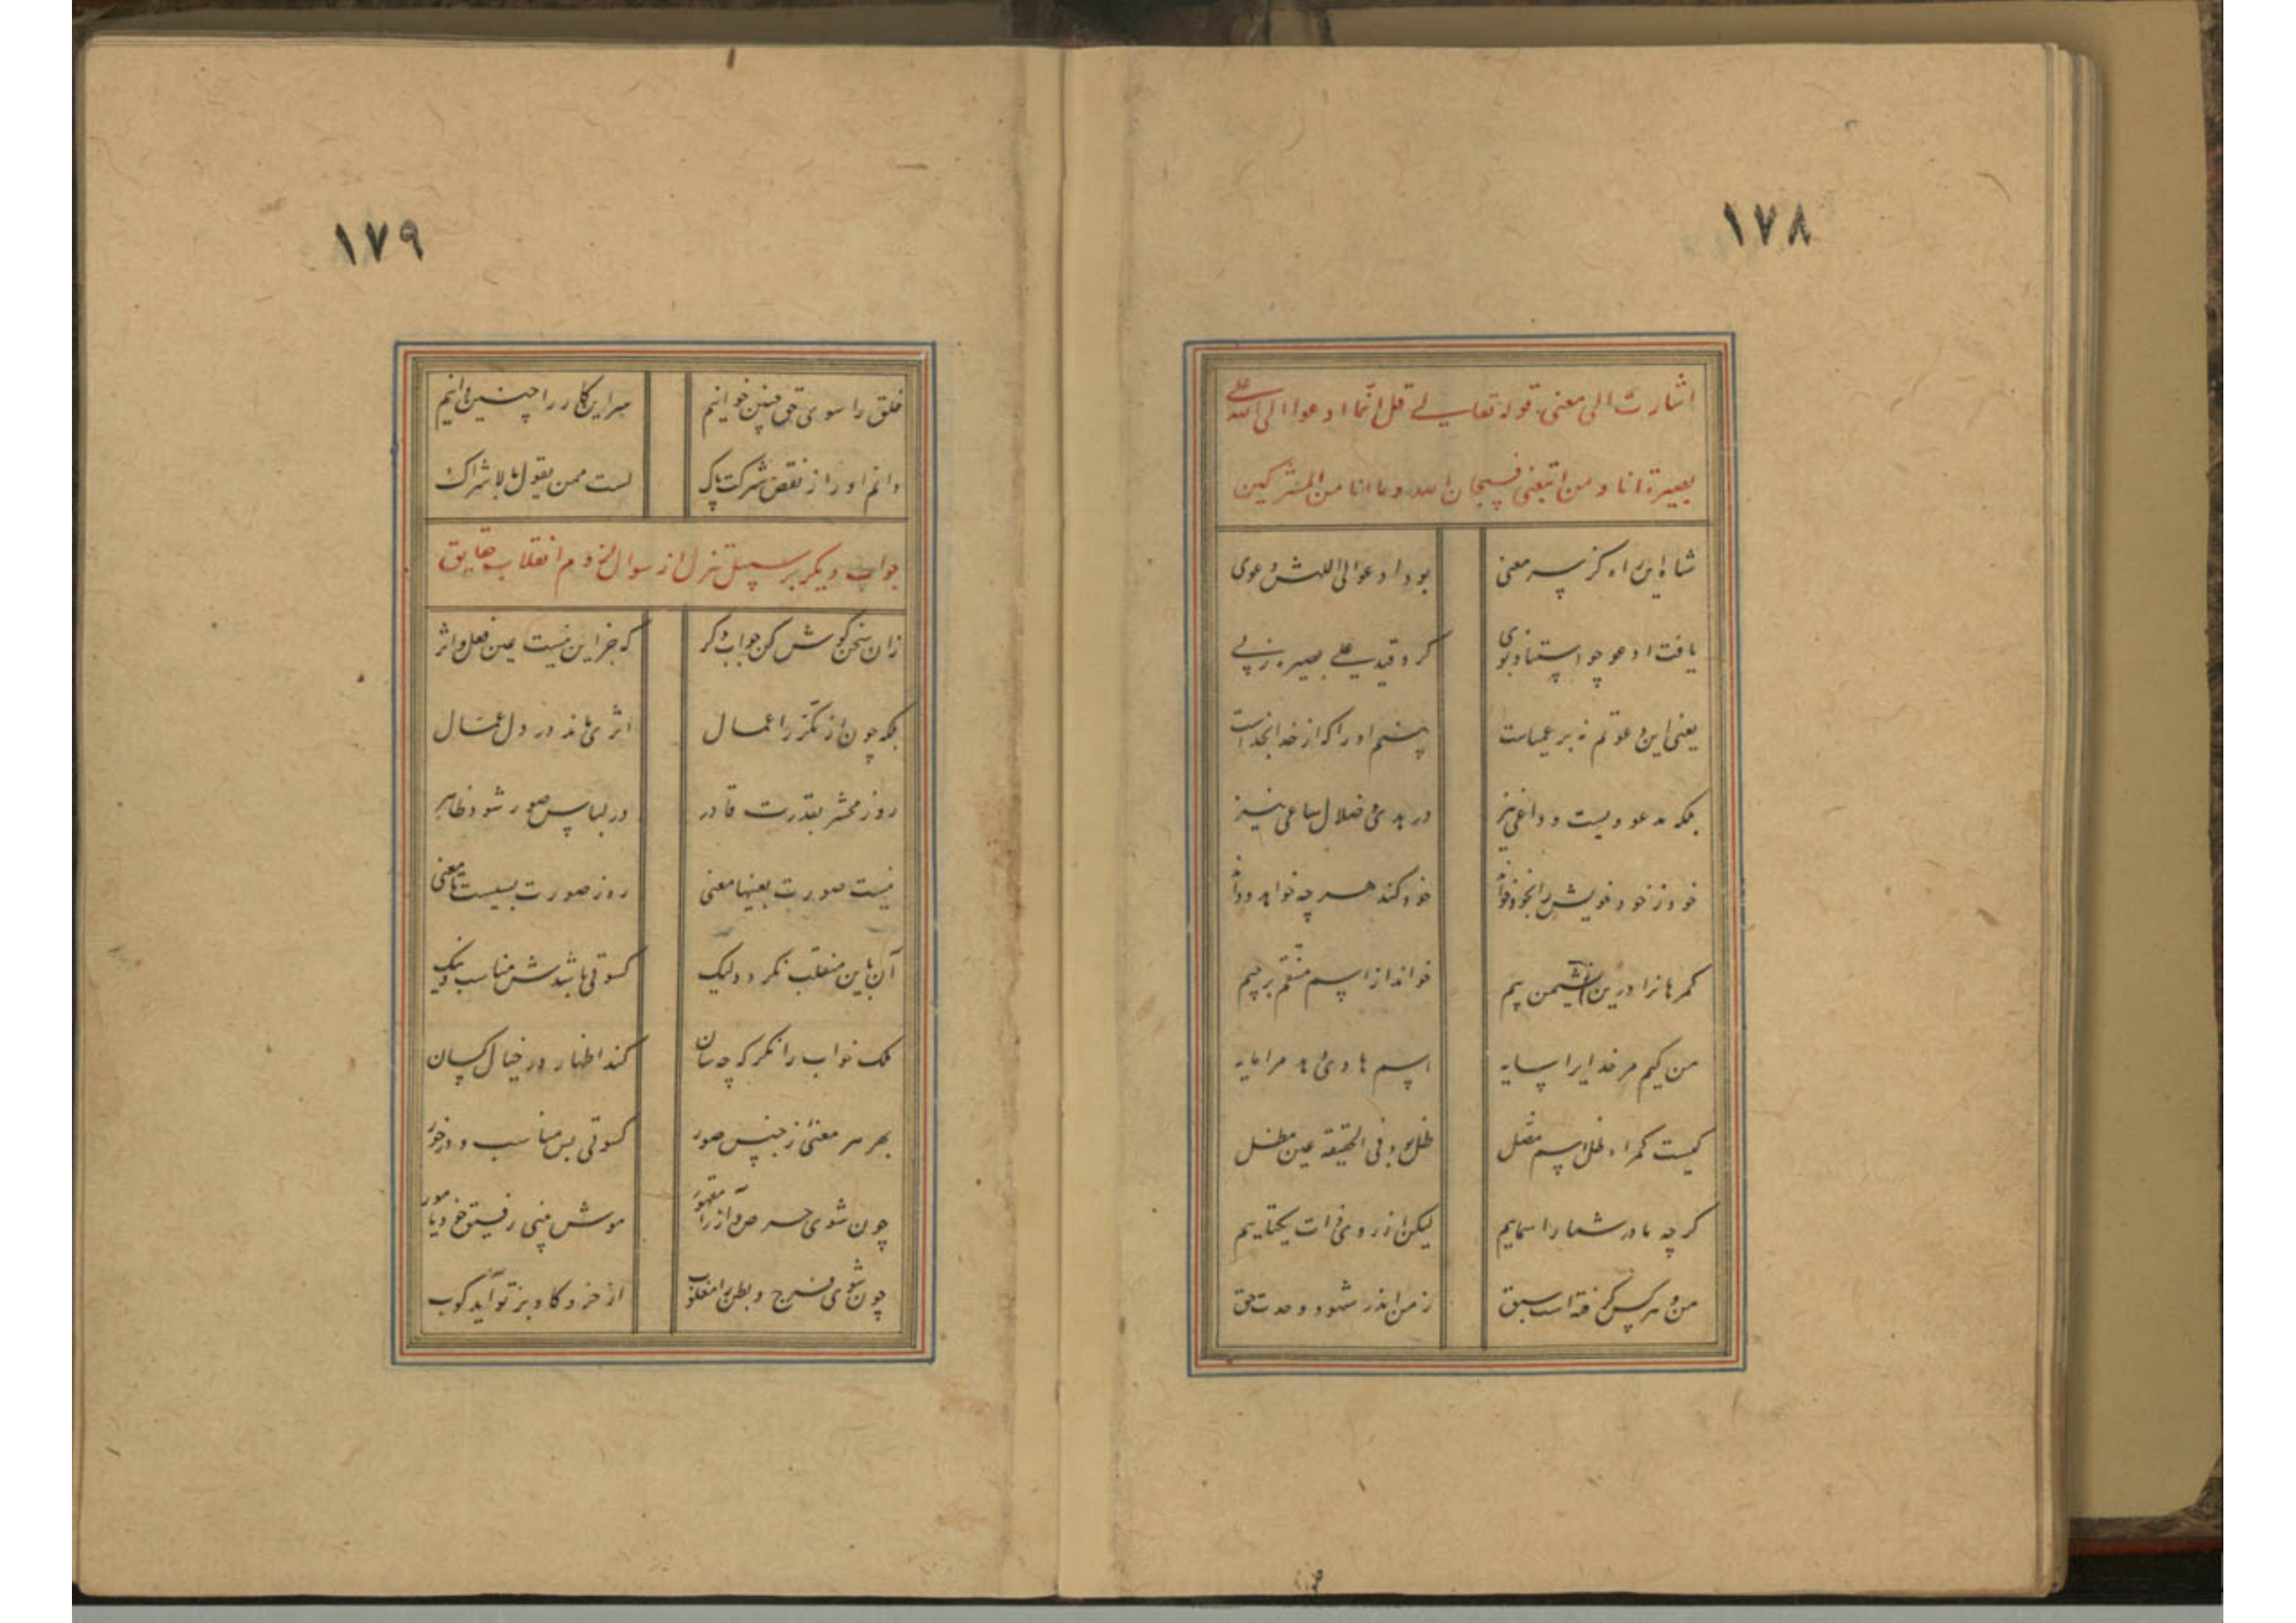 ١٧٨
اشارت الی معنی قوله تعالی قل انما ادعوا الی الله علی
بصیرة انا و من اتبعنی فسبحان الله وما انا من المشرکین
شاه این راه کز سر معنی بود ادعو الی اللهش دعوی
یافت ادعو چو استناد بوی کرد قید علی بصیره ز پی
یعنی این دعوتم نه بر عمیاست بینم او را که از خدا بخداست
بلکه مدعو ویست و داعی نیز در هدی و ضلال ساعی نیز
خود ز خود خویش را بخود خواند خود کند هر چه خواهد و داند
گمرهانرا درین نشیمن بیم خواند از اسم منتقم بر جیم
من کیم مر خدایرا سایه اسم هادی دهد مرا مایه
کیست گمراه ظل اسم مضل ظل بود فی الحقیقه عین مظل
گر چه ما در شمار اسماییم لیکن از روی ذات یکتاییم
من و هر کس گرفته است سبق ز من اندر شهود وحدت حق
١٧٩
خلق را سوی حق چنین خوانیم سر این کار را چنین دانیم
دانم او را ز نقص شرکت پاک لست ممن یقول بالاشراک
جواب دیگر بر سبیل تنزل از سوال لزوم انقلاب حقایق
زان سخن گوش کن جواب دگر که جز این نیست عین فعل و اثر
بلکه چون از تکرر اعمال اثری ماند در دل عمال
روز محشر بقدرت قادر در لباس صور شود ظاهر
نیست صورت بعینها معنی روز صورت بسیست تا معنی
آن باین منقلب نگردد لیک کسوتی باشدش مناسب و نیک
ملک خواب را نگر که چه سان کند اظهار در خیال کسان
بهر هر معنی ز جنس صور کسوتی بس مناسب و در خور
چون شوی حرص و آز را مقهور موش بینی رفیق خود یا مور
چون شوی فرج و بطن را مغلوب از خر و گاو بر تو آید کوب